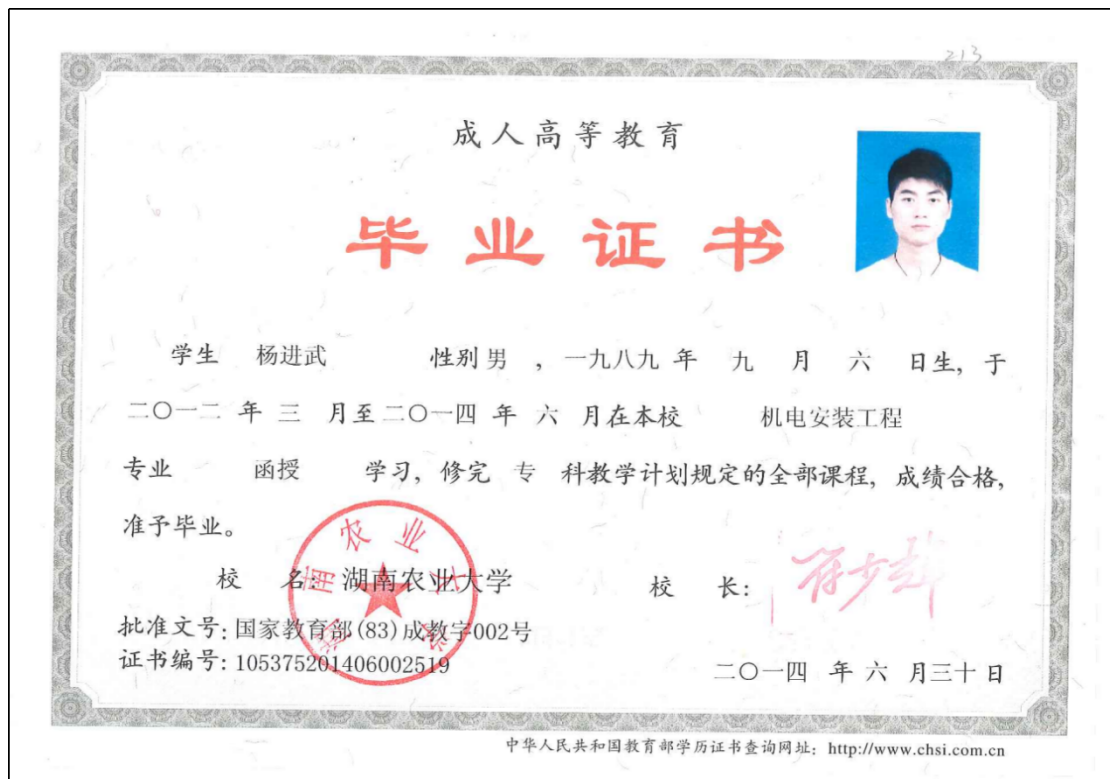 213
成人高等教育
毕业证书
学生 杨进武 性别 男 ，一九八九 年 九 月 六 日生，于
二〇一二 年 三 月至二〇一四 年 六 月在本校 机电安装工程
专业 函授 学习，修完 专 科教学计划规定的全部课程，成绩合格，
准予毕业。
校 名：湖南农业大学
湖南农业大学
校 长：
批准文号：国家教育部(83)成教字002号
证书编号：105375201406002519
二〇一四 年 六 月三十日
中华人民共和国教育部学历证书查询网址：http://www.chsi.com.cn